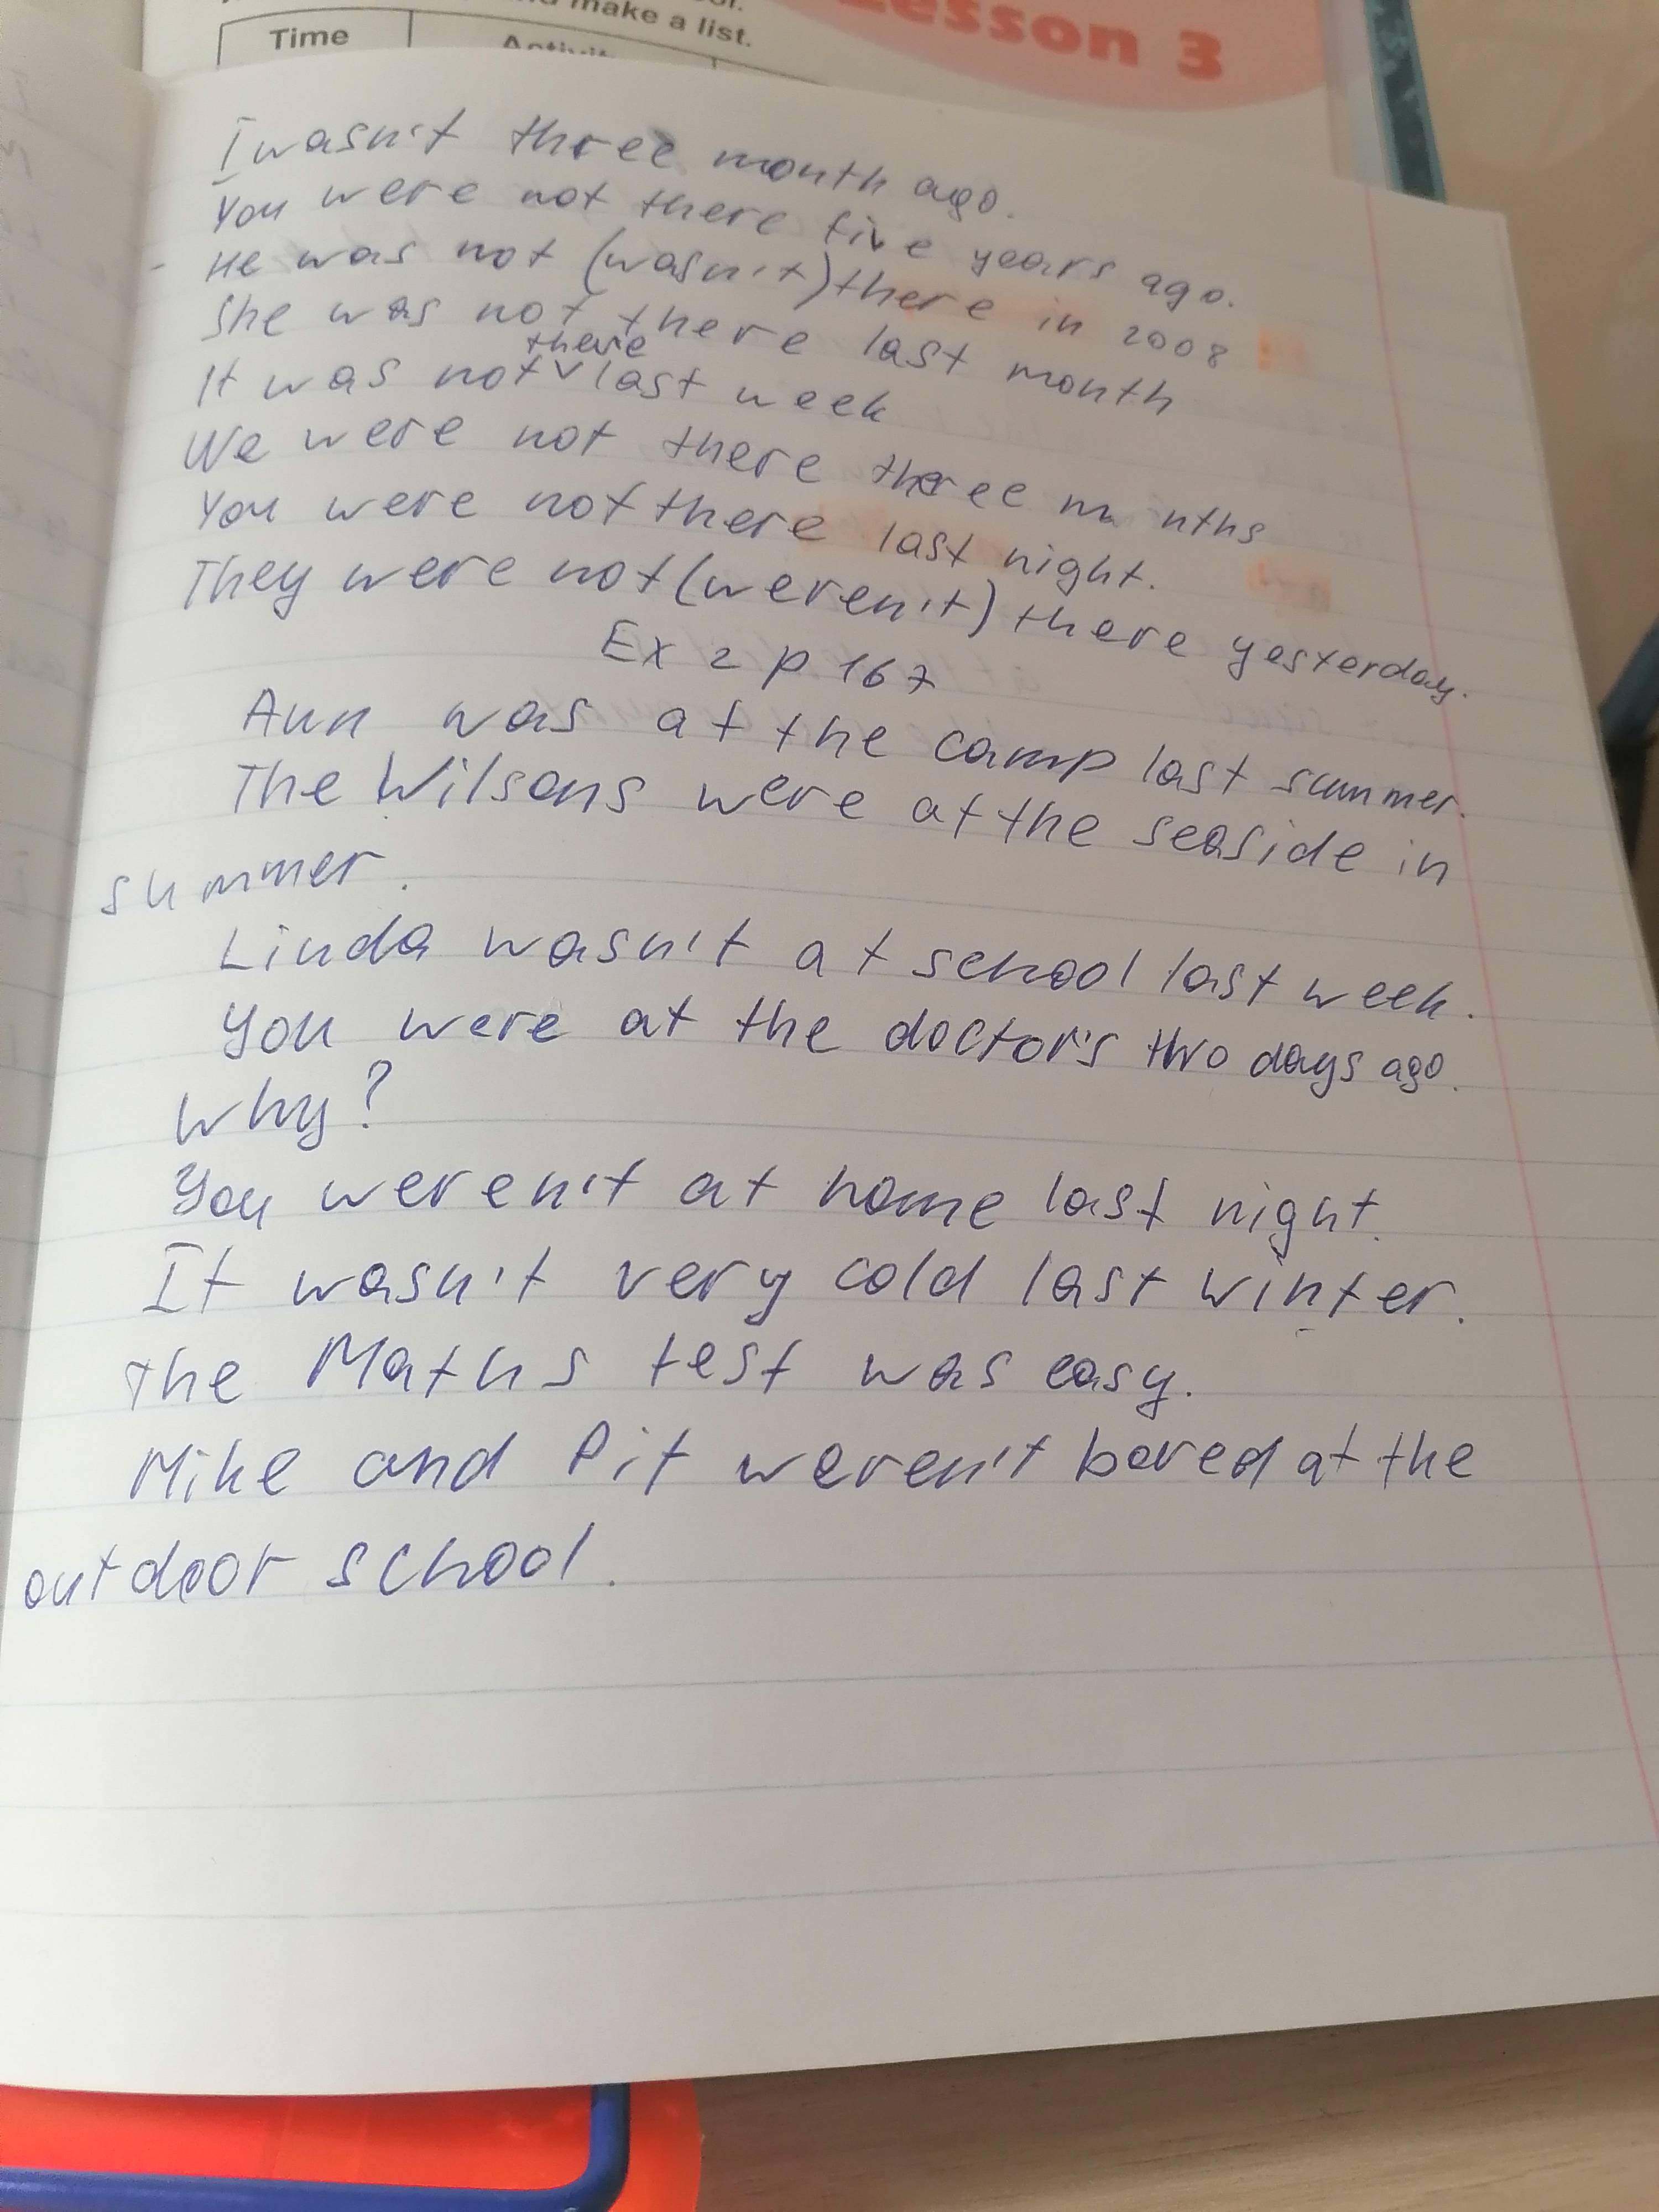 make a list.
Lesson 3
Time
I wasn't three month ago.
You were not there five years ago.
He was not (wasn't) there in 2008
She was not there last month
there
It was not ∨ last week
We were not there three m nths
You were not there last night.
They were not (weren't) there yesterday.
Ex 2 p 167
Ann was at the camp last summer.
The Wilsons were at the seaside in
summer.
Linda wasn't at school last week.
You were at the doctor's two days ago.
Why?
You weren't at home last night.
It wasn't very cold last winter.
The Maths test was easy.
Mike and Pit weren't bored at the
outdoor school.